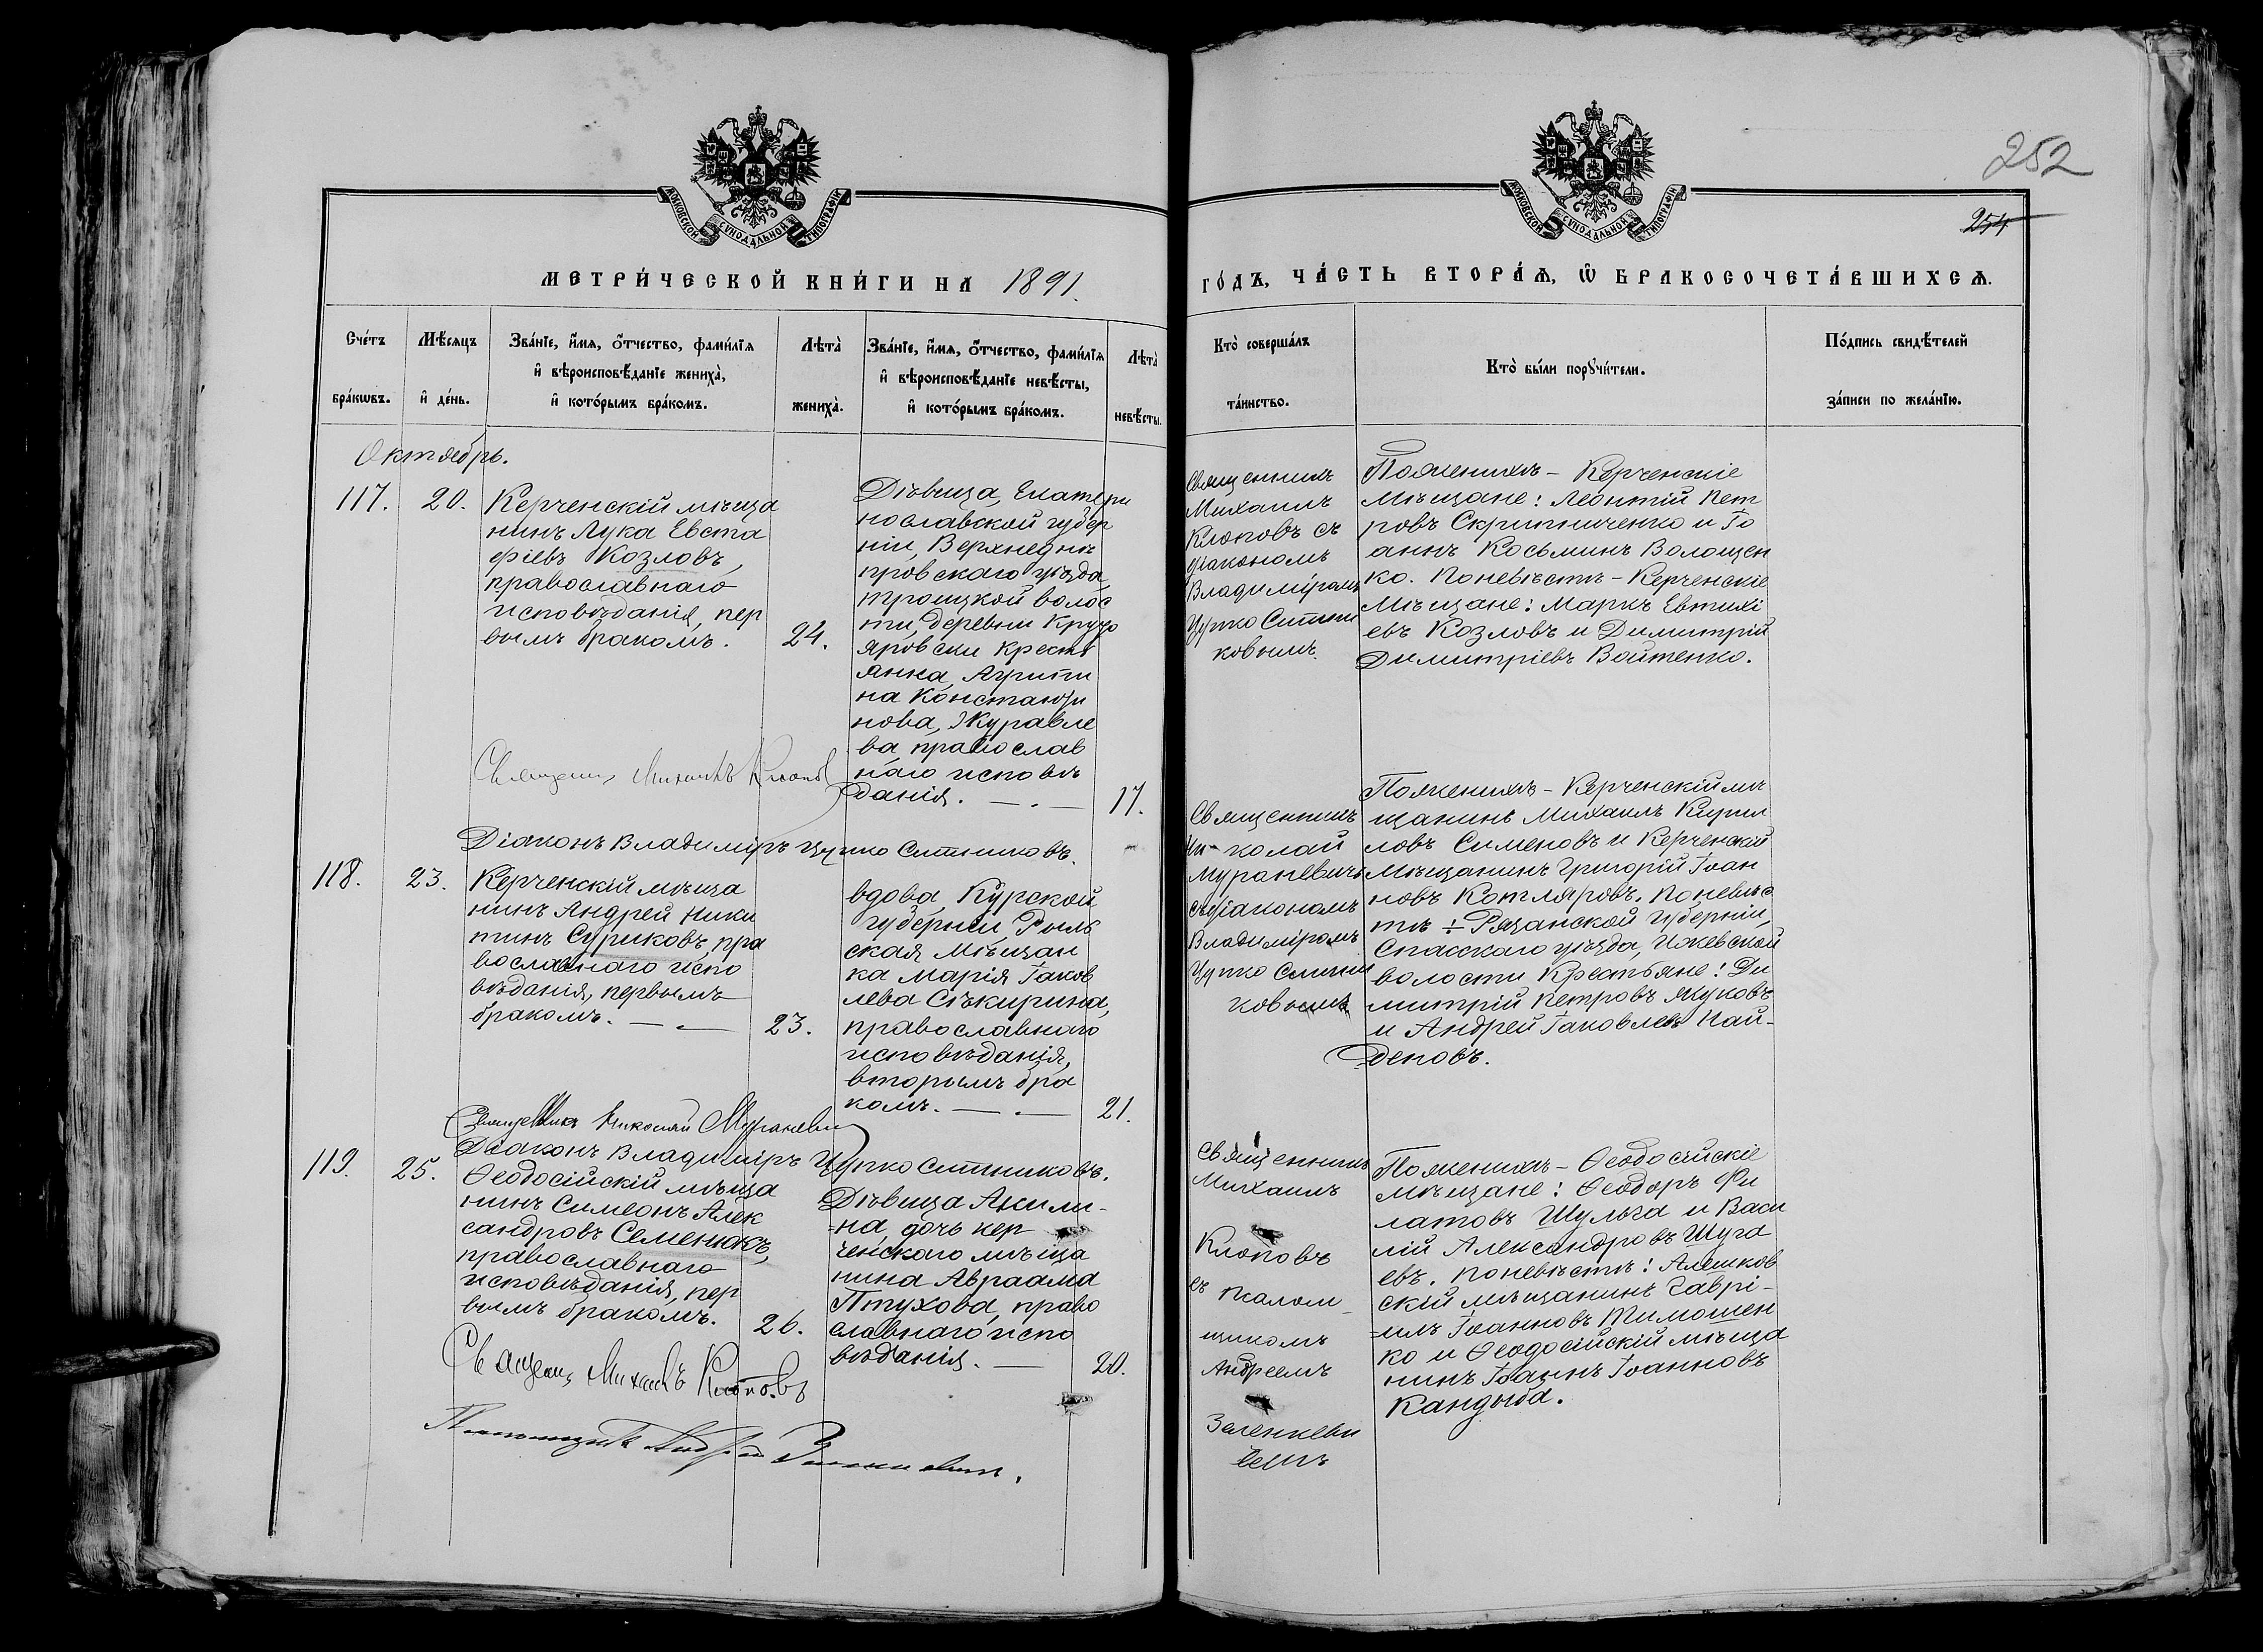 252
254
МОСКОВСКОЙ СУНОДАЛЬНОЙ ТИПОГРАФІИ
МОСКОВСКОЙ СУНОДАЛЬНОЙ ТИПОГРАФІИ
МЕТРИ́ЧЕСКОЙ КНИ́ГИ НА 1891.
ГО́ДЪ, ЧА́СТЬ ВТОРА́Ѧ, Ѡ҆ БРАКОСОЧЕТА́ВШИХСѦ.
Сче́тъ бра́кѡвъ.
Мѣ́сѧцъ и҆ де́нь.
Зва́нїе, и҆́мѧ, ѻ҆́тчество, фами́лїѧ
и҆ вѣроисповѣ́данїе жениха̀,
и҆ кото́рымъ бра́комъ.
Лѣта̀ жениха̀.
Зва́нїе, и҆́мѧ, ѻ҆́тчество, фами́лїѧ
и҆ вѣроисповѣ́данїе невѣ́сты,
и҆ кото́рымъ бра́комъ.
Лѣта̀ невѣ́сты.
Кто̀ соверша́лъ
та́инство.
Кто̀ бы́ли порꙋчи́тели.
По́дпись свидѣ́телей
за́писи по жела́нїю.
Октябрь.
117.
20.
Керченскій мѣща
нинъ Лука Евста
фіевъ Козловъ,
православнаго
исповѣданія, пер
вымъ бракомъ.
24.
Дѣвица, Екатери
нославской губер
ніи, Верхнеднѣ
провскаго уѣзда,
троицкой волос
ти, деревни Круто
яровски кресть
янка, Агрипи
на Константи
нова, Журавле
ва, православ
наго исповѣ
данія.
17.
Священникъ
Михаилъ
Клоповъ съ
діакономъ
Владиміромъ
Цупко Ситни
ковымъ.
Поженихѣ - Керченскіе
мѣщане: Леонтій Пет
ровъ Скрипниченко и Іо
аннъ Косьминъ Волощен
ко. Поневѣстѣ - Керченскіе
мѣщане: Маркъ Евтихі
евъ Козловъ и Димитрій
Димитріевъ Войтенко.
Священникъ Михаилъ Клоповъ
Діаконъ Владиміръ Цупко Ситниковъ.
118.
23.
Керченскій мѣща
нинъ Андрей Ники
тинъ Суриковъ, пра
вославнаго испо
вѣданія, первымъ
бракомъ.
23.
вдова, Курской
губерніи, Рыль
ская мѣщан
ка Марія Іаков
лева Сѣкирина,
православнаго
исповѣданія,
вторымъ бра
комъ.
21.
Священникъ
Ни-колай
Мураневичъ
съ діакономъ
Владиміромъ
Цупко Ситни
ковымъ
Поженихѣ - Керченскій мѣ
щанинъ Михаилъ Кирил
ловъ Сименовъ и Керченскій
мѣщанинъ Григорій Іоан
новъ Котляровъ. Поневѣс
тѣ ÷ Рязанской губерніи,
Спасскаго уѣзда, Ижевской
волости крестьяне: Ди
митрій Петровъ Жуковъ
и Андрей Іаковлевъ Най-
деновъ.
Священникъ Николай Мураневичъ
Діаконъ Владиміръ Цупко Ситниковъ.
119.
25.
Ѳеодосійскій мѣща
нинъ Симеонъ Алек
сандровъ Семенюкъ,
православнаго
исповѣданія, пер
вымъ бракомъ.
26.
Дѣвица Акили-
=на, дочь кер
ченскаго мѣща
нина Авраама
Птухова, право
славнаго испо
вѣданія.
20.
Священникъ
Михаилъ
Клоповъ
съ псалом-
щикомъ
Андреемъ
Зеленкеви
чемъ
Поженихѣ - Ѳеодосійскіе
мѣщане: Ѳеодоръ Фи
латовъ Шульга и Васи
лій Александровъ Шуга
евъ. Поневѣстѣ: Алешков
скій мѣщанинъ Гаврі-
=илъ Іоанновъ Тимошен
ко и Ѳеодосійскій мѣща
нинъ Іоаннъ Іоанновъ
Кандыба.
Священ. Михаилъ Клоповъ
Псаломщикъ Андрей Зеленкевичъ.